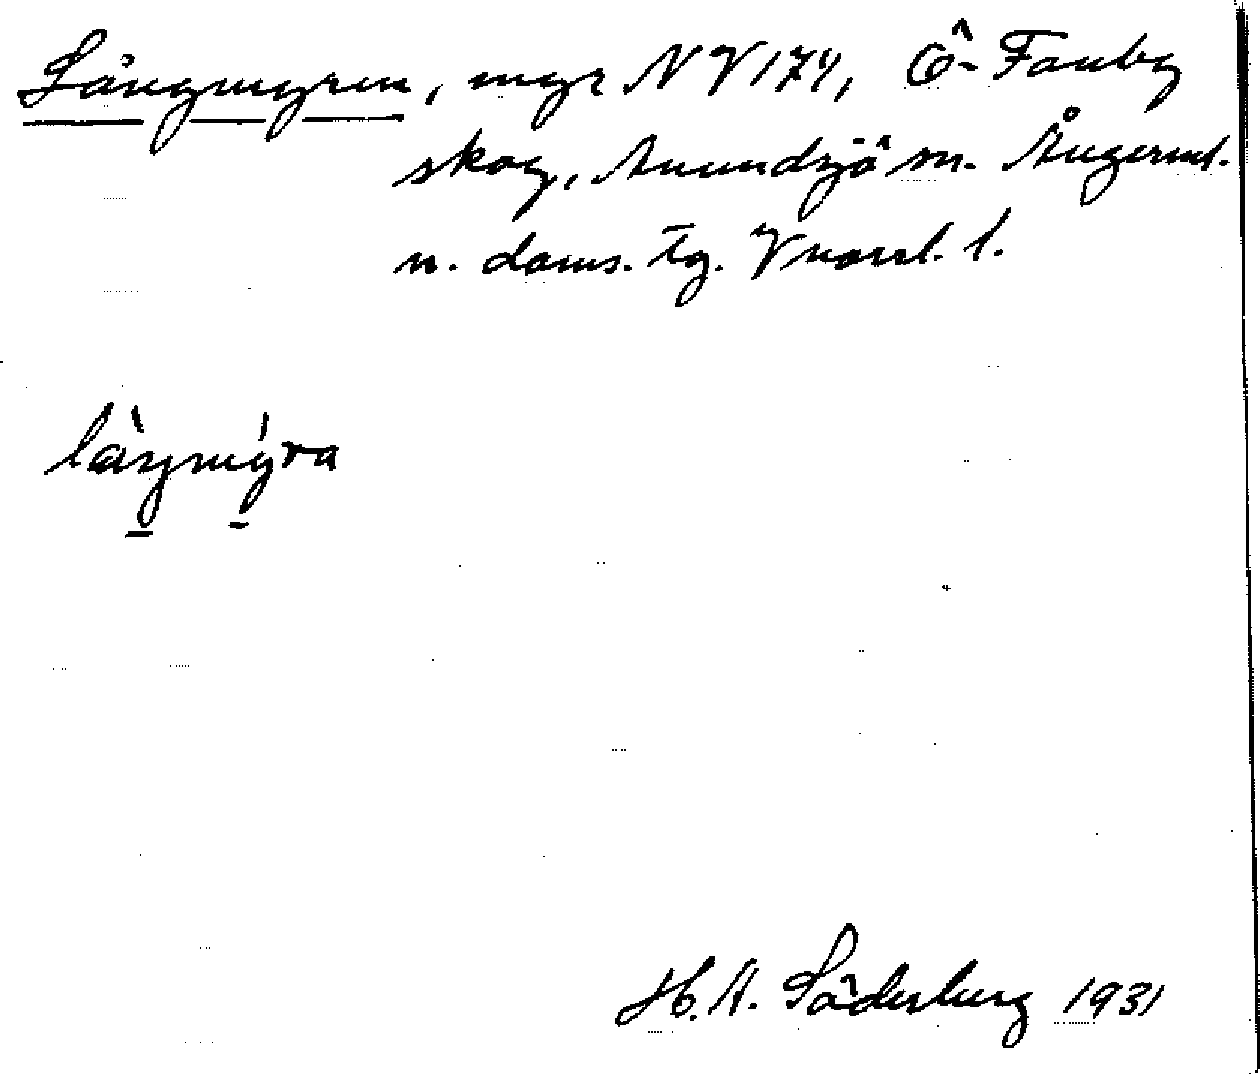 Långmyren, myr NV 174, Ö-Fanby
skog, Anundsjö sn. Ångerml.
n. doms. tg. Vnorrl. l.
làŋmýra
H. A. Söderberg 1931